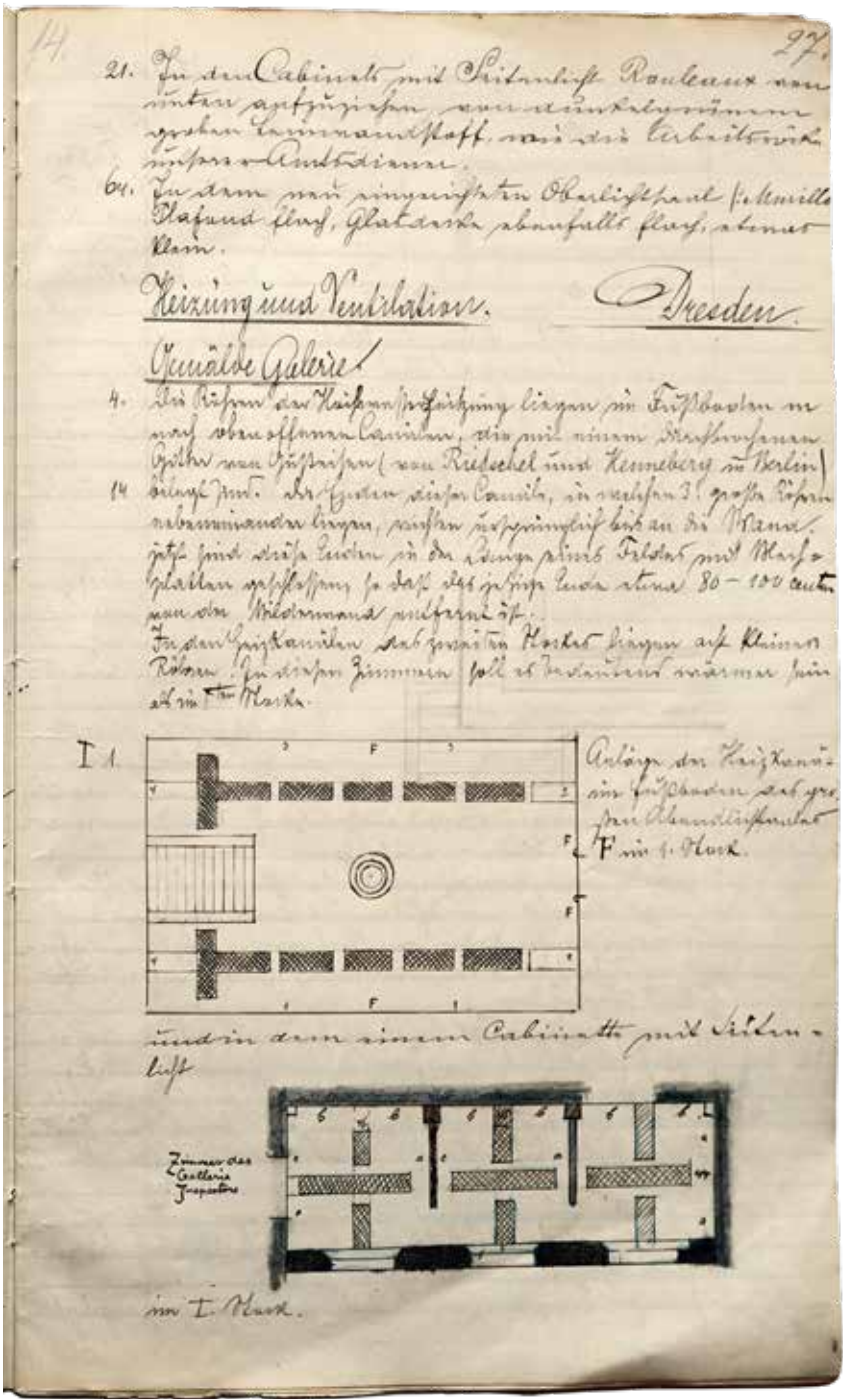 14.
27.
21. In den Cabinets mit Seitenlicht Rouleaux von
unten aufzuziehen, von dunkelgrünem
groben Leinwandstoff, wie die Arbeitsröcke
unserer Amtsdiener.
64. In dem neu eingerichteten Oberlichtsaal (: Murillo
Plafond flach, Glasdecke ebenfalls flach, etwas
klein.
Heizung und Ventilation. Dresden.
Gemälde Galerie
4. Die Röhren der Heißwasserheizung liegen im Fußboden in
nach oben offenen Canälen, die mit einem durchbrochenen
Gitter von Gußeisen (von Rietschel und Henneberg in Berlin)
14 belegt sind. Die Enden dieser Canäle, in welchen 3. große Röhren
nebeneinander liegen, reichten ursprünglich bis an die Wand.
jetzt sind diese Enden in der Länge eines Feldes mit Blech=
platten geschlossen, so daß das jetzige Ende etwa 80 - 100 centm
von der Bilderwand entfernt ist.
In den Heizkanälen des zweiten Stockes liegen acht kleinere
Röhren. In diesen Zimmern soll es bedeutend wärmer sein
als im Iten Stocke.
I 1.
Anlage der Heizkanä-
im Fußboden des gro-
ßen Abendlichtsaales
F im 1. Stock.
F
F
F
F
und in dem einem Cabinette mit Seiten-
licht
Zimmer des
Gallerie
Inspectors
im I. Stock.